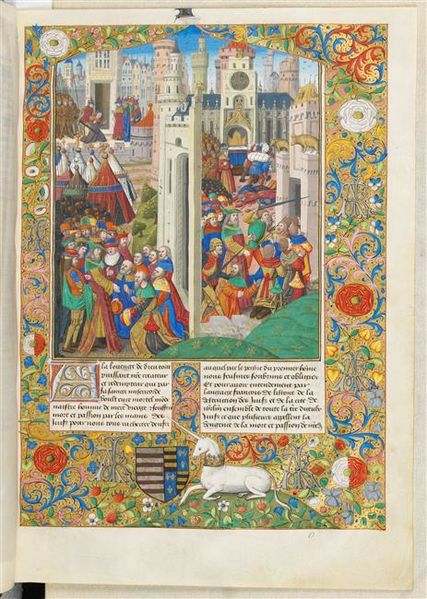 A la louenge de dieu tout
puissant nre createur
et redempteur qui par
sa saincte misericorde
voult en ce mortel monde
naistre homme de mere vierge souffrir
mort et passion par les mains des
Juifz pour nous tous
auquel par le peche du premier homme
nous fusmes soubzmis et obligez
Et pour avoir entendement par
langaige francois de listoire de la
destruction des Juifz et de la cite de
ensemble de toute la vie
Juifz et que plusieurs appellent la
vengence de la mort et passion de